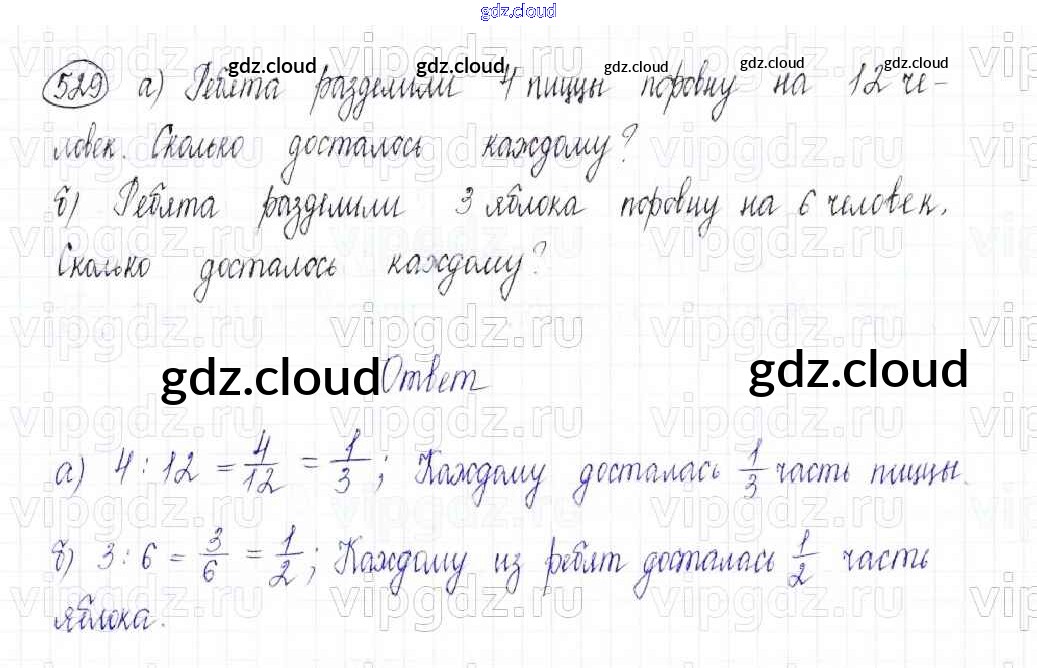 gdz.cloud
gdz.cloud gdz.cloud gdz.cloud gdz.cloud gdz.cloud
529 а) Ребята разделили 4 пиццы поровну на 12 че-
ловек. Сколько досталось каждому?
б) Ребята разделили 3 яблока поровну на 6 человек.
Сколько досталось каждому?
vipgdz.ru vipgdz.ru vipgdz.ru
gdz.cloud Ответ gdz.cloud
а) 4 : 12 = 4/12 = 1/3; Каждому досталась 1/3 часть пиццы.
б) 3 : 6 = 3/6 = 1/2; Каждому из ребят досталась 1/2 часть
яблока.